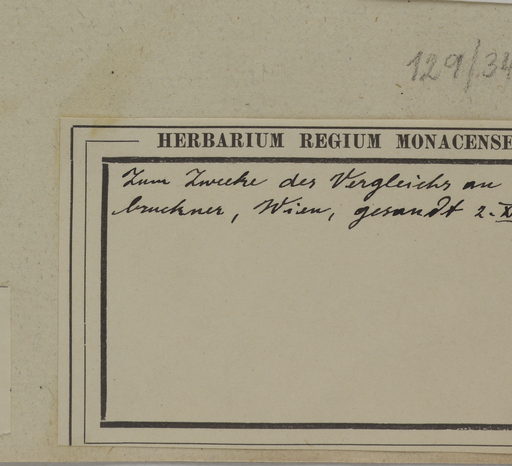 129/34
HERBARIUM REGIUM MONACENSE
Zum Zwecke des Vergleichs an
bruckner, Wien, gesandt 2. X